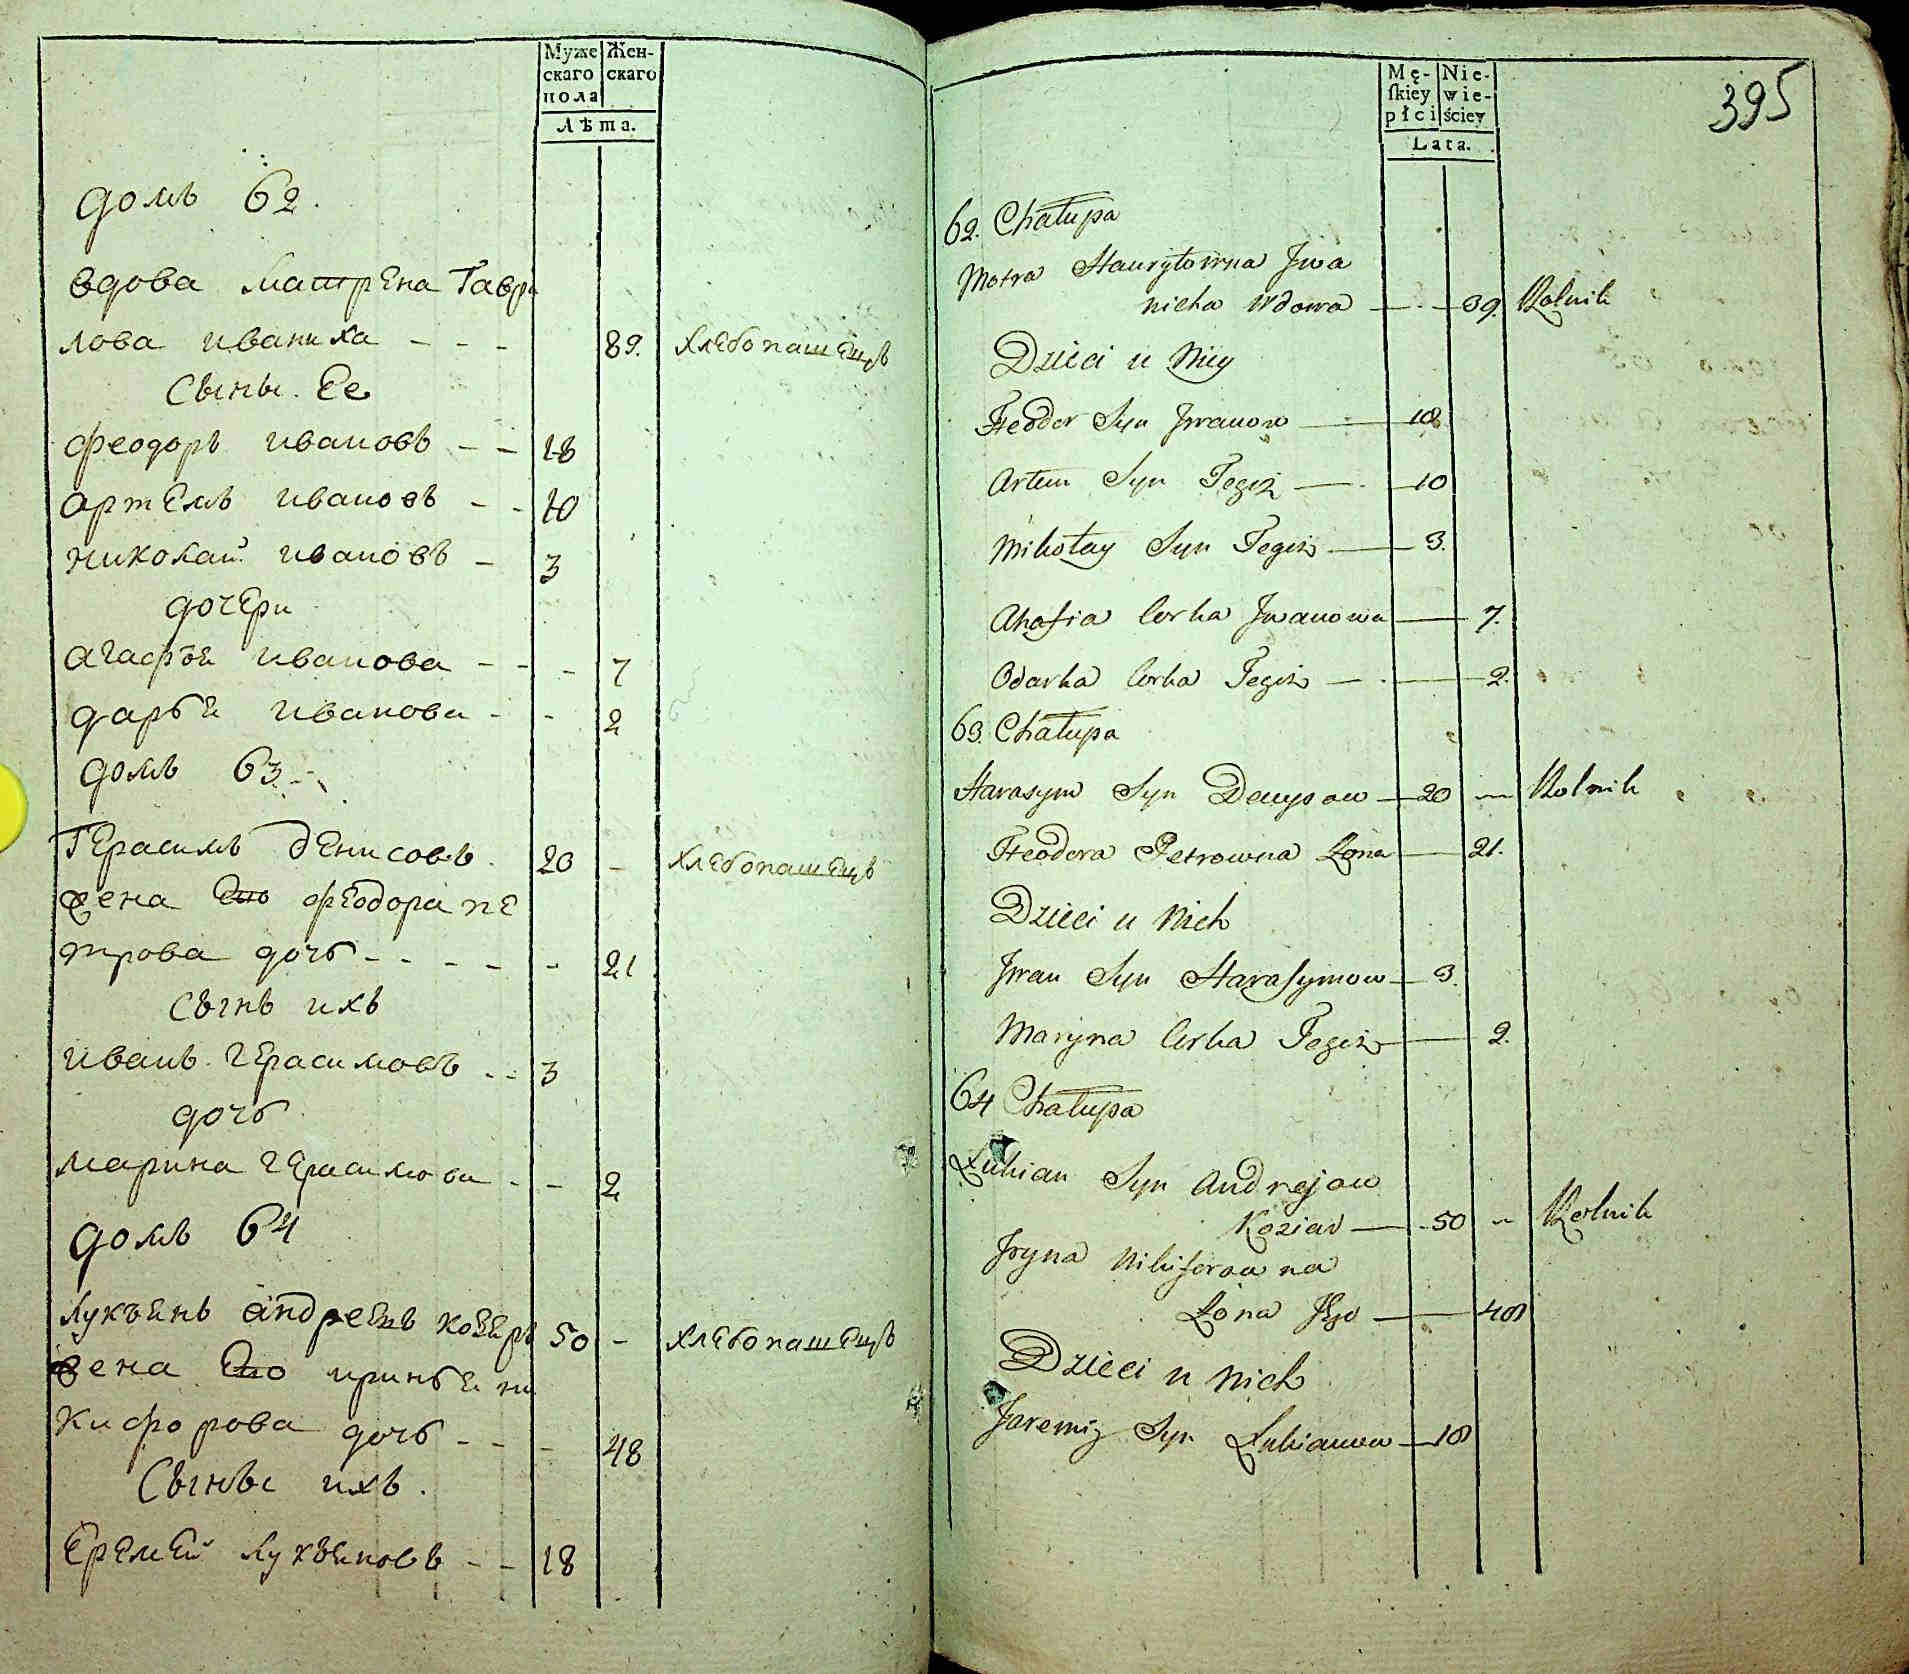 Муже Жен-
скаго скаго
пола
Лѣта.
домъ 62.
вдова Матрена Гаври
лова иваниха - - - 89. хлебопашецъ
сыны. Ее
феодоръ ивановъ - - 18
артемъ ивановъ - - 10
николай ивановъ - 3
дочери
агафья иванова - - - 7
дарья иванова - - 2
домъ 63 - -
Герасимъ денисовъ. 20 - хлебопашецъ
жена Ево феодора пе
трова дочь - - - - - 21
сынъ ихъ
иванъ герасимовъ - - 3
дочь
марина герасимова - - 2
домъ 64
лукьянъ андреевъ козяръ 50 - хлебопашецъ
жена Ево иринья ни
кифорова дочь - - - 48
сыны ихъ.
еремей лукьяновъ - - 18
395
Mę- Nie-
ſkiey wie-
płci ściey
Lata.
62. Chałupa
Motra Hawryłowna Jwa
nicha Wdowa — 39. Rolnik
Dzieci u Niey
Heodor Syn Jwanow — 18
Artem Syn Tegoż — 10
Mikołay Syn Tegoż — 3.
Ahafia Corka Jwanowa — 7.
Odarka Corka Tegoż — 2.
63. Chałupa
Harasym Syn Denysow — 20 — Rolnik
Heodora Petrowna Żona — 21.
Dzieci u Nich
Jwan Syn Harasymow — 3.
Maryna Corka Tegoż — 2.
64 Chałupa
Łukian Syn Andrejow
Koziar — 50 — Rolnik
Jryna Nikiforowna
Żona Jego — 48
Dzieci u Nich
Jaremiy Syn Łukianow — 18